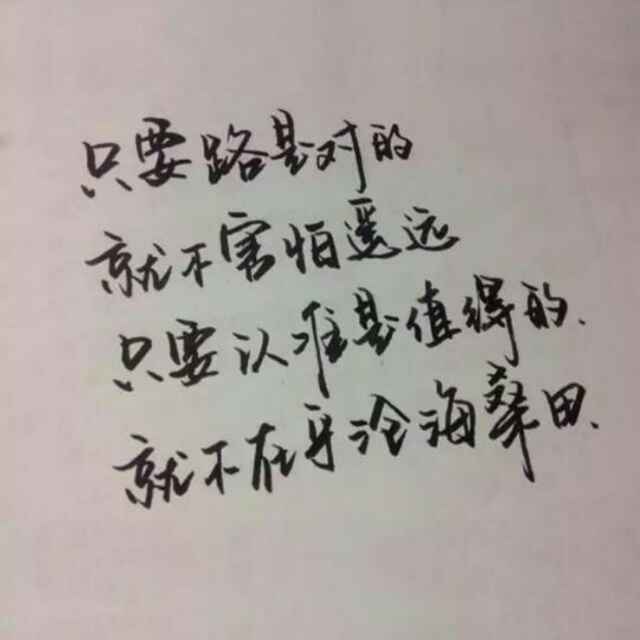 只要路是对的
就不害怕遥远
只要认准是值得的、
就不在乎沧海桑田、